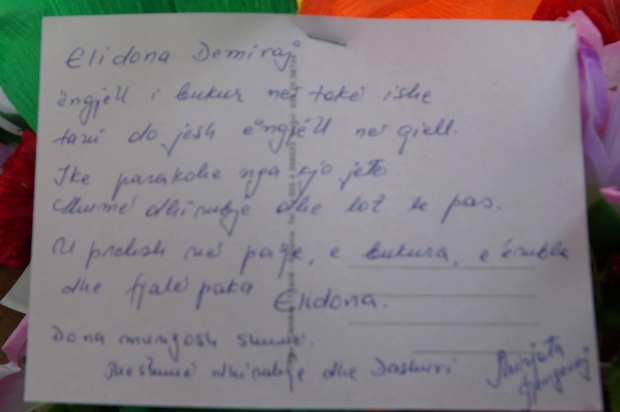 Elidona Demiraj
ëngjëll i bukur në tokë ishe
tani do jesh ëngjëll në qiell.
Ike parakohe nga kjo jetë
Shumë dhimbje dhe lot le pas.
U prehsh në paqe, e bukura, e ëmbla
dhe fjalë paka Elidona.
Do na mungosh shumë.
Me shumë dhimbje dhe Dashuri
Mirjeta